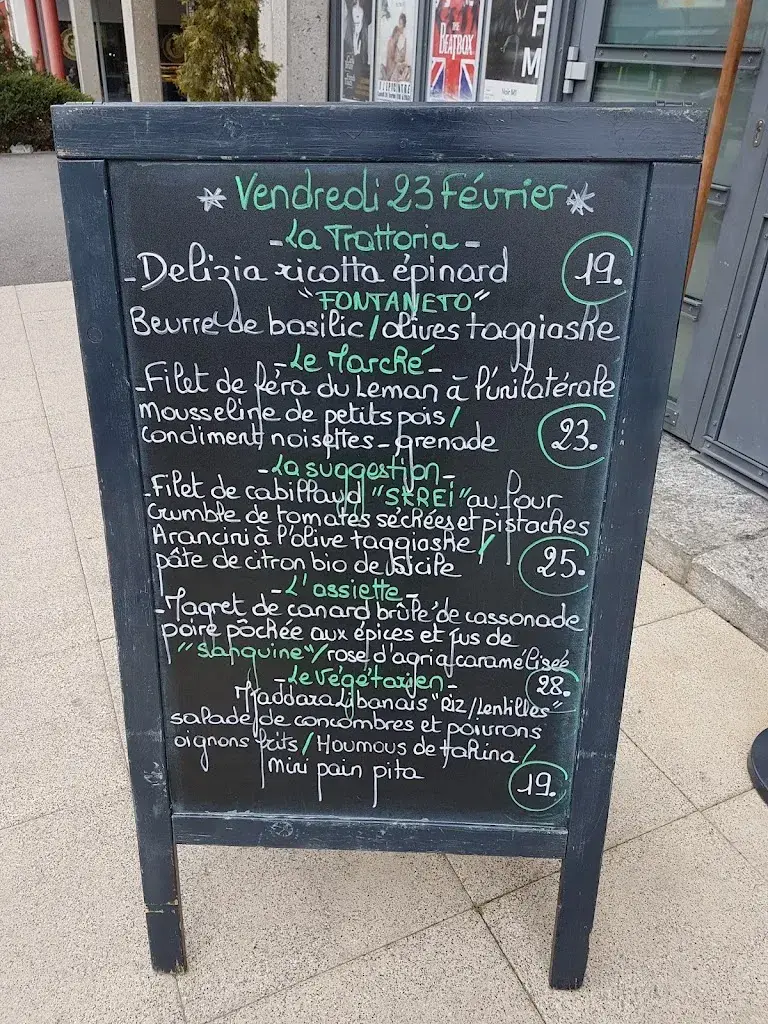 THE
BEATBOX
F
M
* Vendredi 23 Février *
- La Trattoria -
- Delizia ricotta épinard 19.
"FONTANETO"
Beurre de basilic / olives taggiashe
- Le Marché -
- Filet de féra du Leman à l'unilatérale
mousseline de petits pois /
condiment noisettes - grenade 23.
- La suggestion -
- Filet de cabillaud "SKREI" au four
Crumble de tomates séchées et pistaches
Arancini à l'olive taggiashe /
pâte de citron bio de Sicile 25.
- L'assiette -
- Magret de canard brûlé de cassonade
poire pôchée aux épices et jus de
"sanguine" / rose d'agria caramélisée
28.
- Le végétarien -
Maddara Libanais "Riz / Lentilles"
salade de concombres et poivrons
oignons frits / Houmous de tahina /
mini pain pita 19.